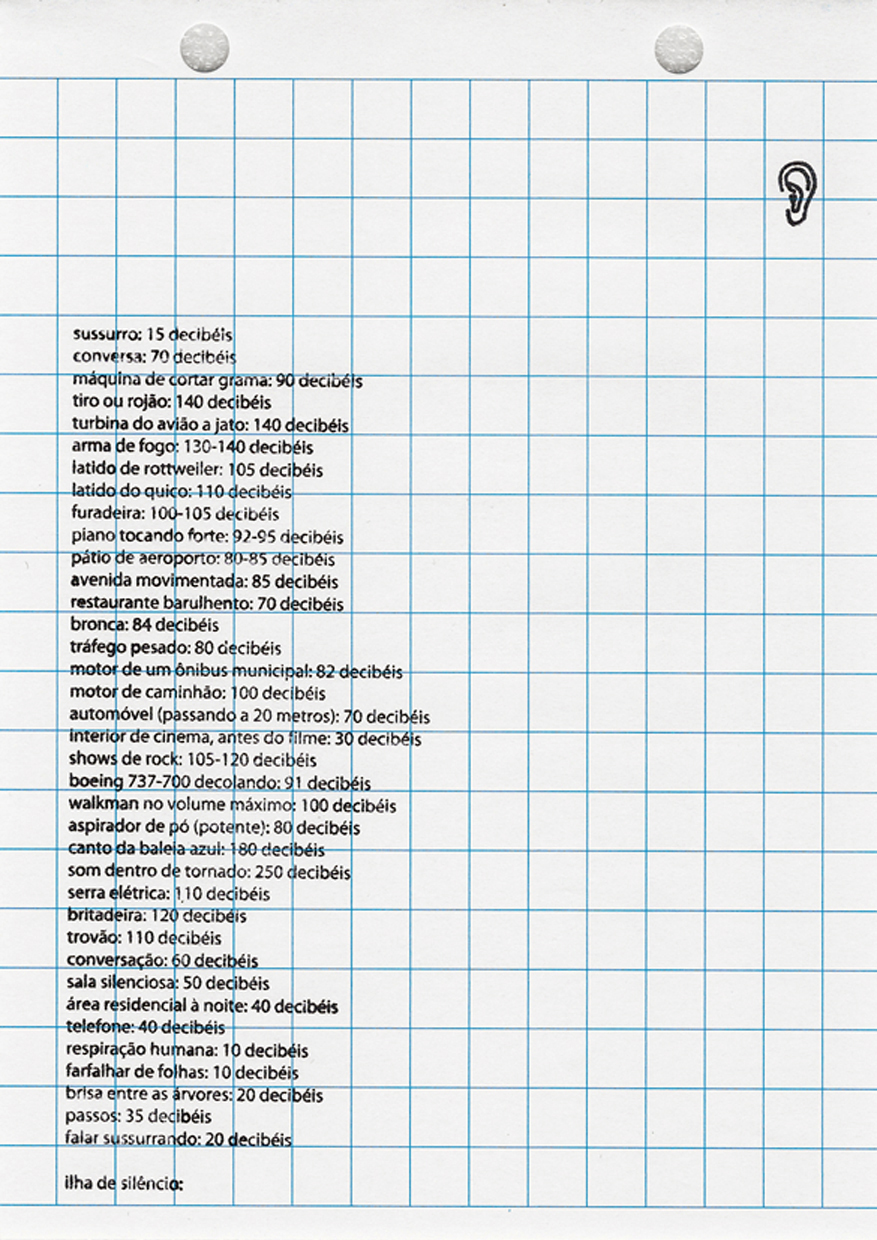 sussurro: 15 decibéis
conversa: 70 decibéis
máquina de cortar grama: 90 decibéis
tiro ou rojão: 140 decibéis
turbina do avião a jato: 140 decibéis
arma de fogo: 130-140 decibéis
latido de rottweiler: 105 decibéis
latido do quico: 110 decibéis
furadeira: 100-105 decibéis
piano tocando forte: 92-95 decibéis
pátio de aeroporto: 80-85 decibéis
avenida movimentada: 85 decibéis
restaurante barulhento: 70 decibéis
bronca: 84 decibéis
tráfego pesado: 80 decibéis
motor de um ônibus municipal: 82 decibéis
motor de caminhão: 100 decibéis
automóvel (passando a 20 metros): 70 decibéis
interior de cinema, antes do filme: 30 decibéis
shows de rock: 105-120 decibéis
boeing 737-700 decolando: 91 decibéis
walkman no volume máximo: 100 decibéis
aspirador de pó (potente): 80 decibéis
canto da baleia azul: 180 decibéis
som dentro de tornado: 250 decibéis
serra elétrica: 110 decibéis
britadeira: 120 decibéis
trovão: 110 decibéis
conversação: 60 decibéis
sala silenciosa: 50 decibéis
área residencial à noite: 40 decibéis
telefone: 40 decibéis
respiração humana: 10 decibéis
farfalhar de folhas: 10 decibéis
brisa entre as árvores: 20 decibéis
passos: 35 decibéis
falar sussurrando: 20 decibéis
ilha de silêncio: